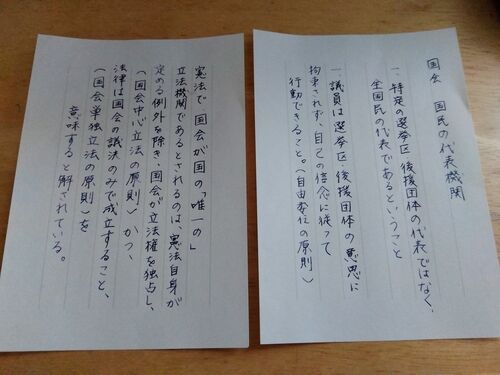 国会　国民の代表機関
一、特定の選挙区、後援団体の代表ではなく、
全国民の代表であるということ
一、議員は選挙区、後援団体の意思に
拘束されず、自己の信念に従って
行動できること。（自由委任の原則）
憲法で、国会が国の「唯一の」
立法機関であるとされるのは、憲法自身が
定める例外を除き、国会が立法権を独占し、
（国会中心立法の原則）かつ、
法律は国会の議決のみで成立すること、
（国会単独立法の原則）を
意味すると解されている。